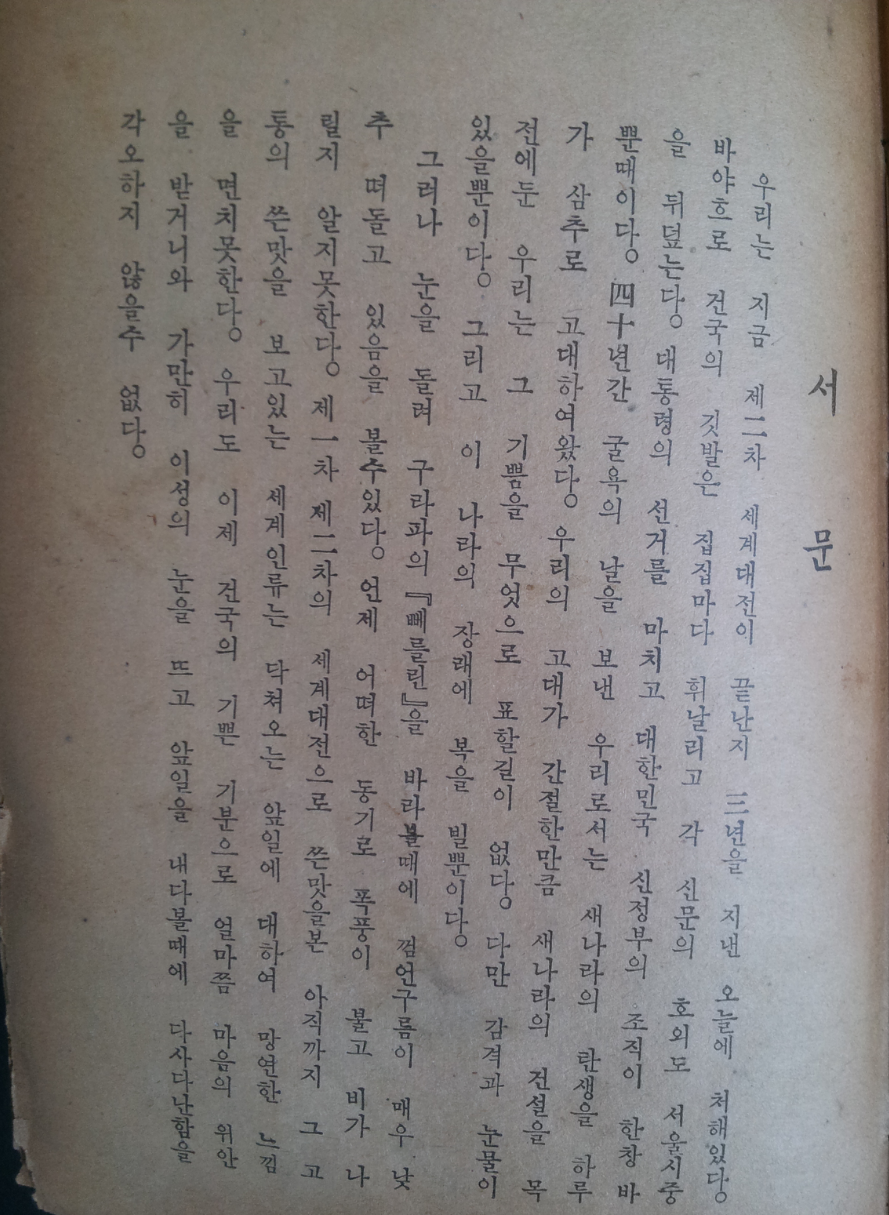 서 문
우리는 지금 제二차 세계대전이 끝난지 三년을 지낸 오늘에 처해있다。
바야흐로 건국의 깃발은 집집마다 휘날리고 각 신문의 호외도 서울시중
을 뒤덮는다。 대통령의 선거를 마치고 대한민국 신정부의 조직이 한창 바
뿐때이다。 四十년간 굴욕의 날을 보낸 우리로서는 새나라의 탄생을 하루
가 삼추로 고대하여왔다。 우리의 고대가 간절한만큼 새나라의 건설을 목
전에둔 우리는 그 기쁨을 무엇으로 표할길이 없다。 다만 감격과 눈물이
있을뿐이다。 그리고 이 나라의 장래에 복을 빌뿐이다。
그러나 눈을 돌려 구라파의 『뻬를린』을 바라볼때에 껌언구름이 매우 낮
추 떠돌고 있음을 볼수있다。 언제 어떠한 동기로 폭풍이 불고 비가 나
릴지 알지못한다。 제一차 제二차의 세계대전으로 쓴맛을본 아직까지 그 고
통의 쓴맛을 보고있는 세계인류는 닥쳐오는 앞일에 대하여 망연한 느낌
을 면치못한다。 우리도 이제 건국의 기쁜 기분으로 얼마쯤 마음의 위안
을 받거니와 가만히 이성의 눈을 뜨고 앞일을 내다볼때에 다사다난함을
각오하지 않을수 없다。